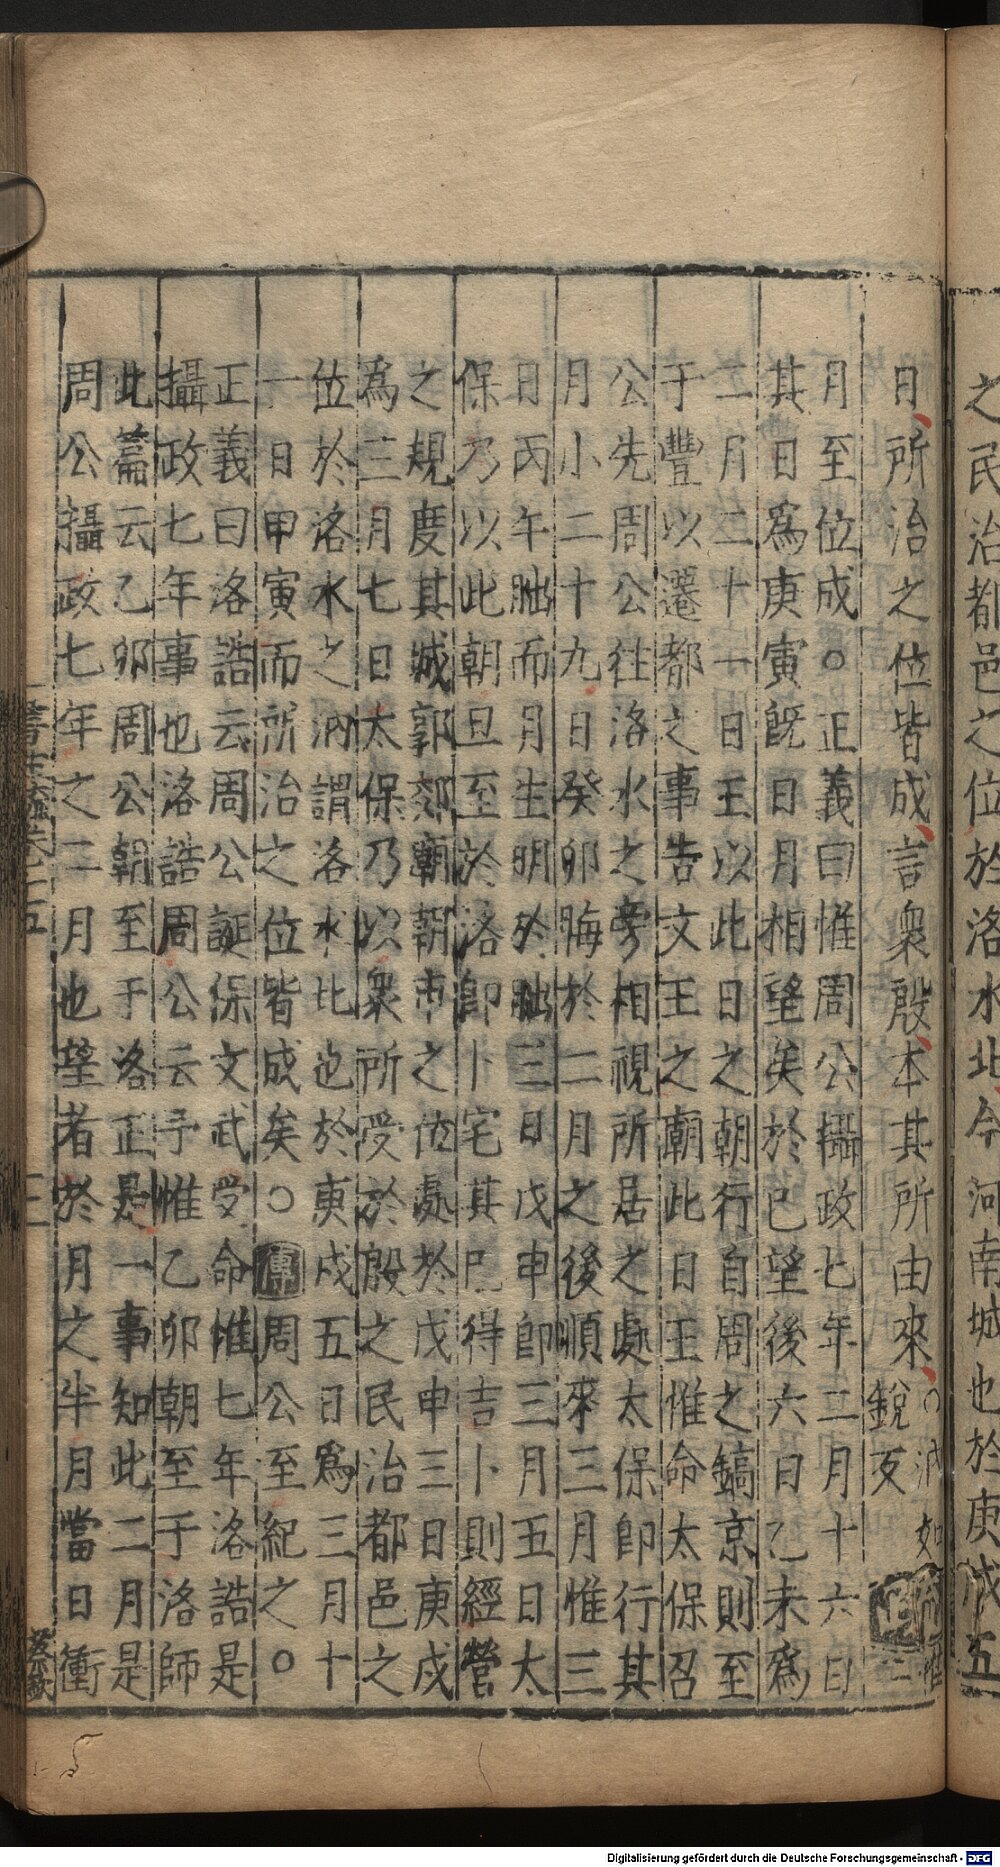 之民治都邑之位於洛水北今河南城也於庚戌五
日所治之位皆成言衆殷本其所由來
○汭如
銳反
疏
惟二
月至位成○正義曰惟周公攝政七年二月十六日
其日爲庚寅既日月相望矣於已望後六日乙未爲
二月二十一日王以此日之朝行自周之鎬京則至
于豐以遷都之事告文王之廟此日王惟命太保召
公先周公往洛水之旁相視所居之處太保卽行其
月小二十九日癸卯晦於二月之後順來三月惟三
日丙午朏而月生明於朏三日戊申卽三月五日太
保乃以此朝旦至於洛卽卜宅其已得吉卜則經營
之規度其城郭郊廟朝市之位處於戊申三日庚戌
爲三月七日太保乃以衆所受於殷之民治都邑之
位於洛水之汭謂洛水北也於庚戌五日爲三月十
一日甲寅而所治之位皆成矣○傳周公至紀之○
正義曰洛誥云周公誕保文武受命惟七年洛誥是
攝政七年事也洛誥周公云予惟乙卯朝至于洛師
此篇云乙卯周公朝至于洛正是一事知此二月是
周公攝政七年之二月也望者於月之半月當日衝
Digitalisierung gefördert durch die Deutsche Forschungsgemeinschaft - DFG